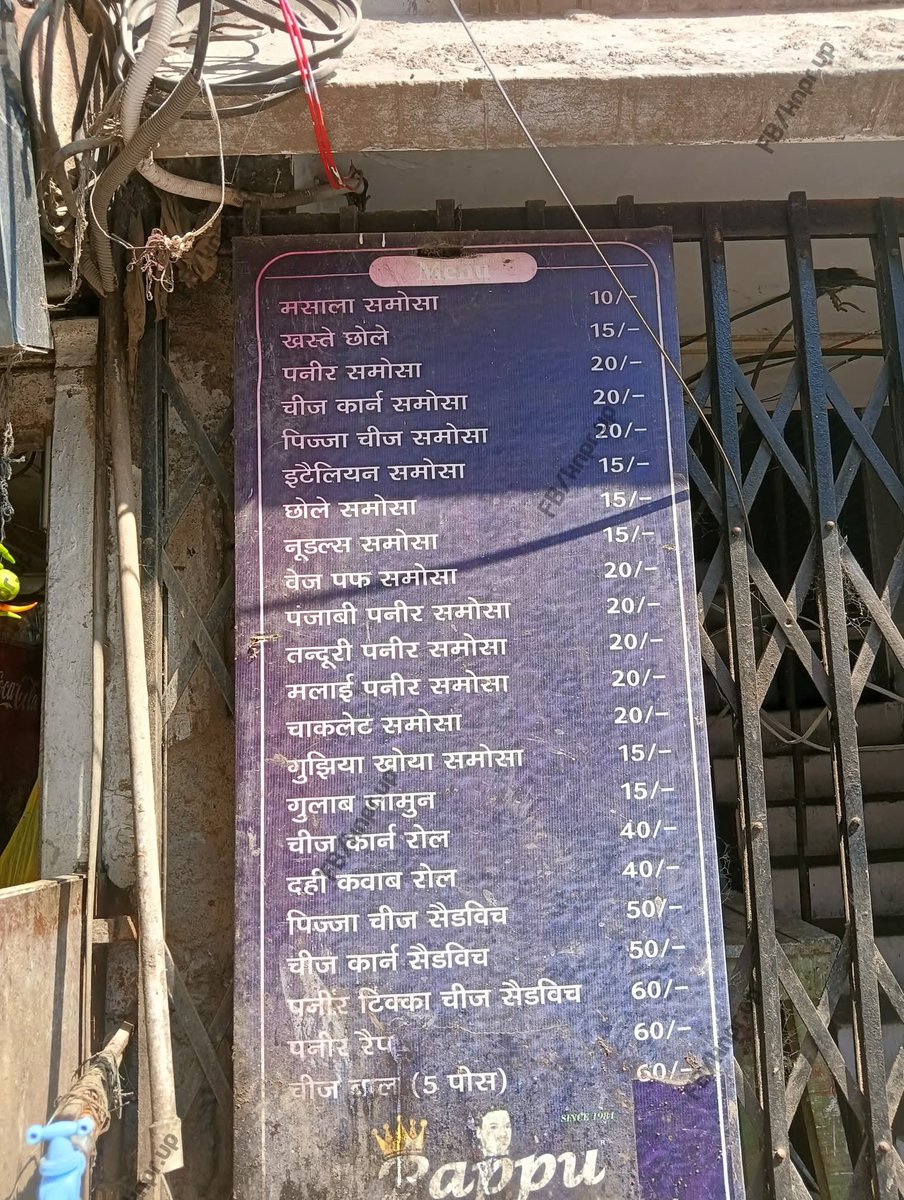 Menu
मसाला समोसा 10/-
खस्ते छोले 15/-
पनीर समोसा 20/-
चीज कार्न समोसा 20/-
पिज्जा चीज समोसा 20/-
इटैलियन समोसा 15/-
छोले समोसा 15/-
नूडल्स समोसा 15/-
वेज पफ समोसा 20/-
पंजाबी पनीर समोसा 20/-
तन्दूरी पनीर समोसा 20/-
मलाई पनीर समोसा 20/-
चाकलेट समोसा 20/-
गुझिया खोया समोसा 15/-
गुलाब जामुन 15/-
चीज कार्न रोल 40/-
दही कवाब रोल 40/-
पिज्जा चीज सैडविच 50/-
चीज कार्न सैडविच 50/-
पनीर टिक्का चीज सैडविच 60/-
पनीर रैप 60/-
चीज बाल (5 पीस) 60/-
SINCE 1984
Pappu
FB/Hnpr.up
FB/Hnpr.up
FB/Hnpr.up
Coca-Cola